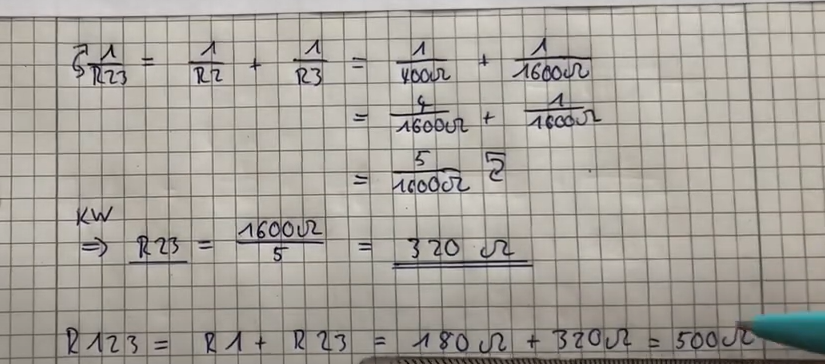 1/R23 = 1/R2 + 1/R3 = 1/400Ω + 1/1600Ω
= 4/1600Ω + 1/1600Ω
= 5/1600Ω
KW
⇒ R23 = 1600Ω/5 = 320 Ω
R123 = R1 + R23 = 180Ω + 320Ω = 500Ω